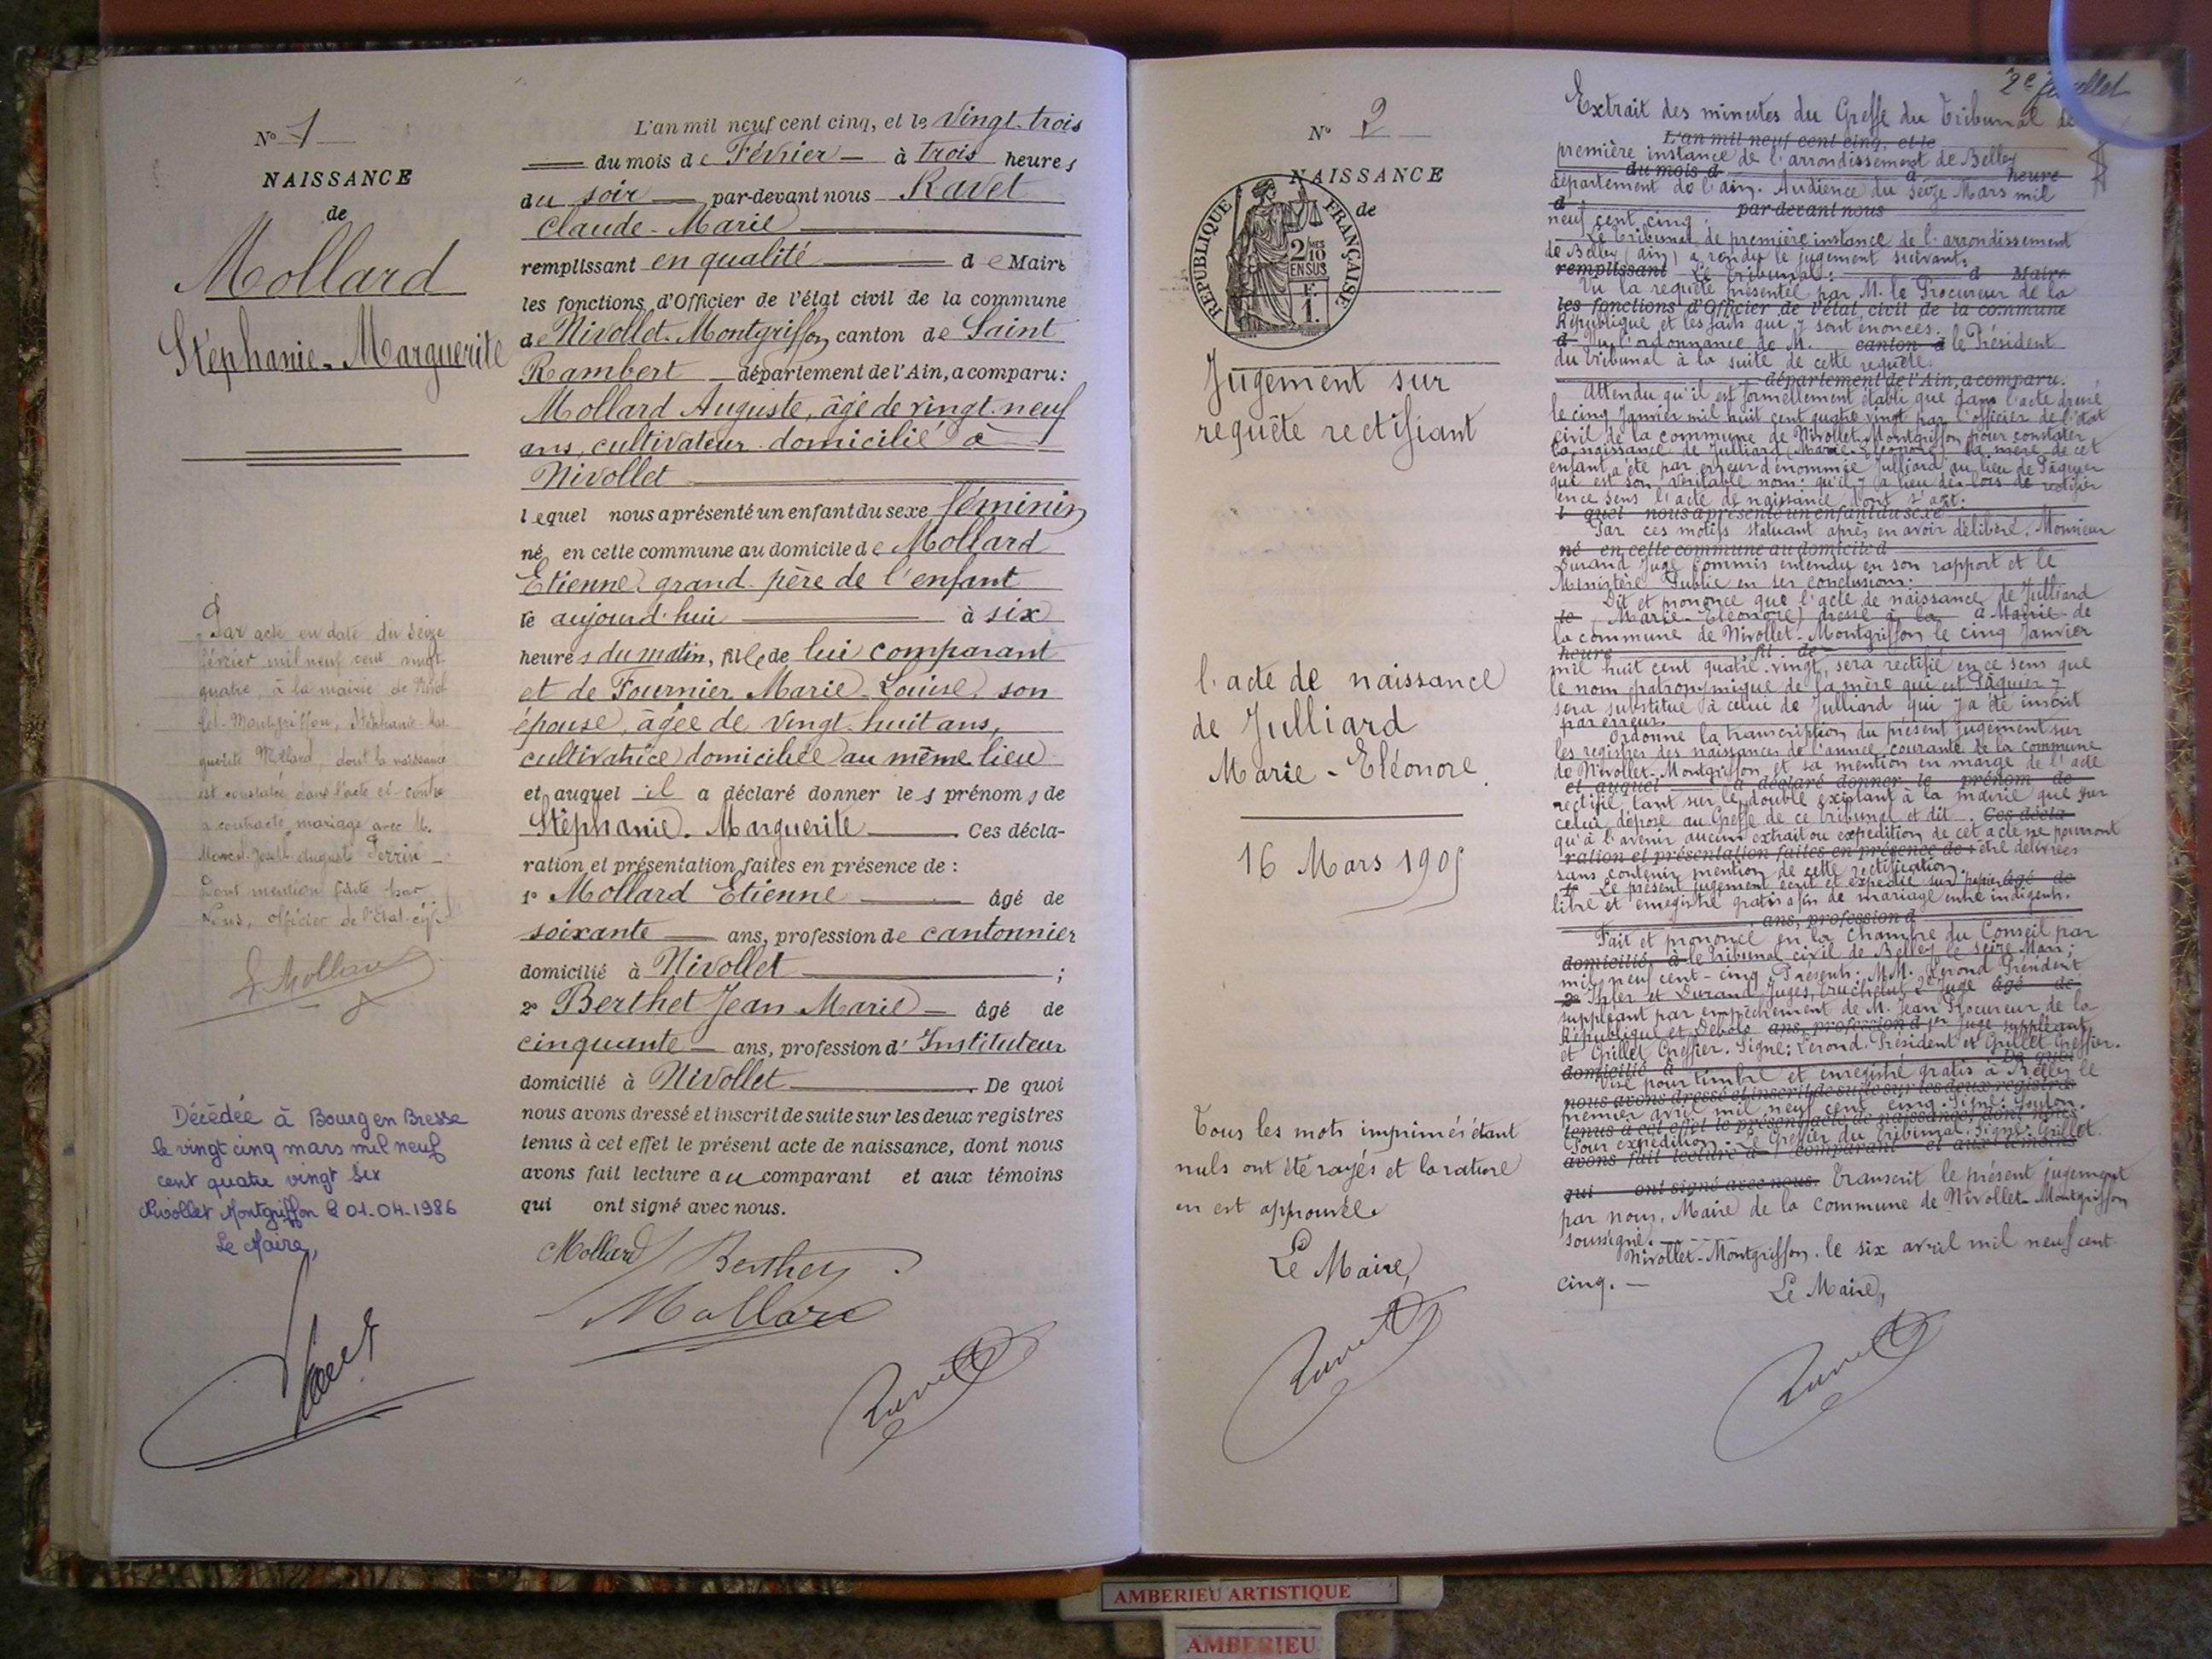 N° 1
NAISSANCE
de
Mollard
Stéphanie-Marguerite
Par acte en date du seize
février mil neuf cent vingt
quatre, à la mairie de Nivol
let-Montgriffon, Stéphanie-Mar
guerite Mollard, dont la naissance
est constatée dans l'acte ci-contre
a contracté mariage avec M.
Marcel-Joseph Auguste Perrin
Dont mention faite par
Nous, officier de l'Etat-civil
Mollard
Décédée à Bourg en Bresse
le vingt cinq mars mil neuf
cent quatre vingt six
Nivollet Montgriffon le 01-04-1986
Le Maire,
L'an mil neuf cent cinq, et le vingt-trois
du mois de Février à trois heures
du soir par-devant nous Ravet
Claude-Marie
remplissant en qualité de Maire
les fonctions d'Officier de l'état civil de la commune
de Nivollet-Montgriffon canton de Saint
Rambert département de l'Ain, a comparu :
Mollard Auguste, âgé de vingt-neuf
ans, cultivateur domicilié à
Nivollet
lequel nous a présenté un enfant du sexe féminin
né en cette commune au domicile de Mollard
Etienne, grand-père de l'enfant
le aujourd'hui à six
heures du matin, fille de lui comparant
et de Fournier Marie-Louise, son
épouse, âgée de vingt-huit ans,
cultivatrice domiciliée au même lieu
et auquel il a déclaré donner les prénoms de
Stéphanie-Marguerite Ces décla-
ration et présentation faites en présence de :
1° Mollard Etienne âgé de
soixante ans, profession de cantonnier
domicilié à Nivollet ;
2° Berthet Jean Marie âgé de
cinquante ans, profession d'Instituteur
domicilié à Nivollet. De quoi
nous avons dressé et inscrit de suite sur les deux registres
tenus à cet effet le présent acte de naissance, dont nous
avons fait lecture au comparant et aux témoins
qui ont signé avec nous.
Mollard Berthet
Mollard
Ravet
N° 2
NAISSANCE
de
REPUBLIQUE FRANÇAISE
2/10 MES
EN SUS
F.
1.
Jugement sur
requête rectifiant
l'acte de naissance
de Julliard
Marie-Eléonore
16 Mars 1905
Tous les mots imprimés étant
nuls ont été rayés et la rature
en est approuvée
Le Maire,
Ravet
2e feuillet
Extrait des minutes du Greffe du Tribunal de
L'an mil neuf cent cinq, et le
première instance de l'arrondissement de Belley
du mois d à heure
département de l'ain. Audience du seize Mars mil
d par-devant nous
neuf cent cinq.
Le Tribunal de première instance de l'arrondissement
de Belley (ain) a rendu le jugement suivant :
remplissant Le Tribunal : d Maire
Vu la requête présentée par M. le Procureur de la
les fonctions d'Officier de l'état civil de la commune
République et les faits qui y sont énoncés.
d Vu l'ordonnance de M. canton d le Président
du Tribunal à la suite de cette requête.
département de l'Ain, a comparu.
Attendu qu'il est formellement établi que dans l'acte dressé
le cinq Janvier mil huit cent quatre vingt par l'officier de l'état
civil de la commune de Nivollet-Montgriffon pour constater
la naissance de Julliard (Marie-Eléonore) la mère de cet
enfant a été par erreur dénommée Julliard au lieu de Pâquier
qui est son véritable nom : qu'il y a lieu dès lors de rectifier
en ce sens l'acte de naissance dont s'agit.
l quel nous a présenté un enfant du sexe
Par ces motifs statuant après en avoir délibéré. Monsieur
né en cette commune au domicile d
Durand Juge Commis entendu en son rapport et le
Ministère Public en ses conclusions.
Dit et prononce que l'acte de naissance de Julliard
le (Marie-Eléonore) dressé à la à Mairie de
la commune de Nivollet-Montgriffon le cinq Janvier
heure fil de
mil huit cent quatre-vingt, sera rectifié en ce sens que
le nom patronymique de la mère qui est Pâquier
sera substitué à celui de Julliard qui y a été inscrit
par erreur.
Ordonne la transcription du présent jugement sur
les registres des naissances de l'année courante de la commune
de Nivollet-Montgriffon et sa mention en marge de l'acte
et auquel a déclaré donner le prénom de
rectifié, tant sur le double existant à la mairie que sur
celui déposé au Greffe de ce Tribunal et dit Ces décla-
qu'à l'avenir aucun extrait ou expédition de cet acte ne pourront
ration et présentation faites en présence de : être délivrés
sans contenir mention de cette rectification.
1° Le présent jugement écrit et expédié sur papier âgé de
libre et enregistré gratis afin de mariage entre indigents.
ans, profession d
Fait et prononcé en la Chambre du Conseil par
domicilié à le Tribunal civil de Belley le seize Mars
mil neuf cent-cinq. Présents : MM. Lerond Président
2° et Durand Juges, 2e Juge âgé de
suppléant par empêchement de M. Jean Procureur de la
République et ans, profession d 1er Juge suppléant
et Grillet Greffier. Signé : Lerond. Président et Grillet Greffier.
domicilié à De quoi
Visé pour timbre et enregistré gratis à Belley le
nous avons dressé et inscrit de suite sur les deux registres
premier avril mil neuf cent cinq. Signé :
tenus à cet effet le présent acte de naissance, dont nous
Pour expédition. Le Greffier du Tribunal. Signé : Grillet.
avons fait lecture à comparant et aux témoins
qui ont signé avec nous. Transcrit le présent jugement
par nous, Maire de la commune de Nivollet-Montgriffon
soussigné.
Nivollet-Montgriffon, le six avril mil neuf cent
cinq.
Le Maire,
Ravet
AMBERIEU ARTISTIQUE
AMBERIEU